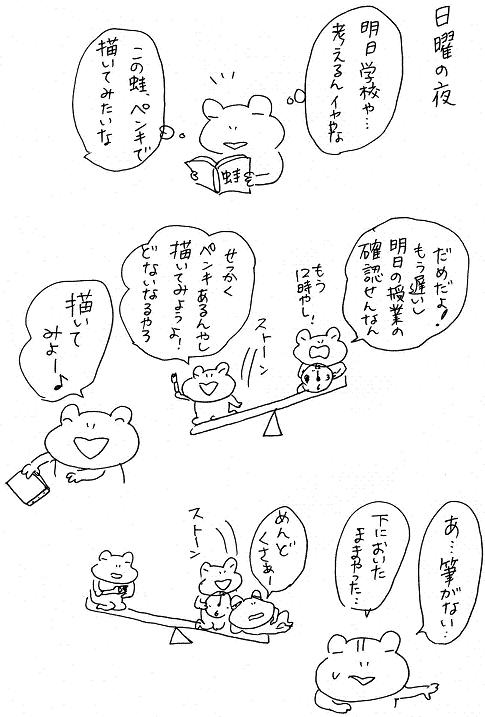 日曜の夜
明日学校や…
考えるんイヤやな
この蛙、ペンキで
描いてみたいな
蛙
だめだよ!
もう遅いし
明日の授業の
確認せんなん
もう
12時やし!
せっかく
ペンキあるんやし
描いてみようよ!
どないなるやろ
ストーン
描いて
みよー♪
あ…筆がない…
下においた
ままやった…
めんど
くさぁー
ストーン